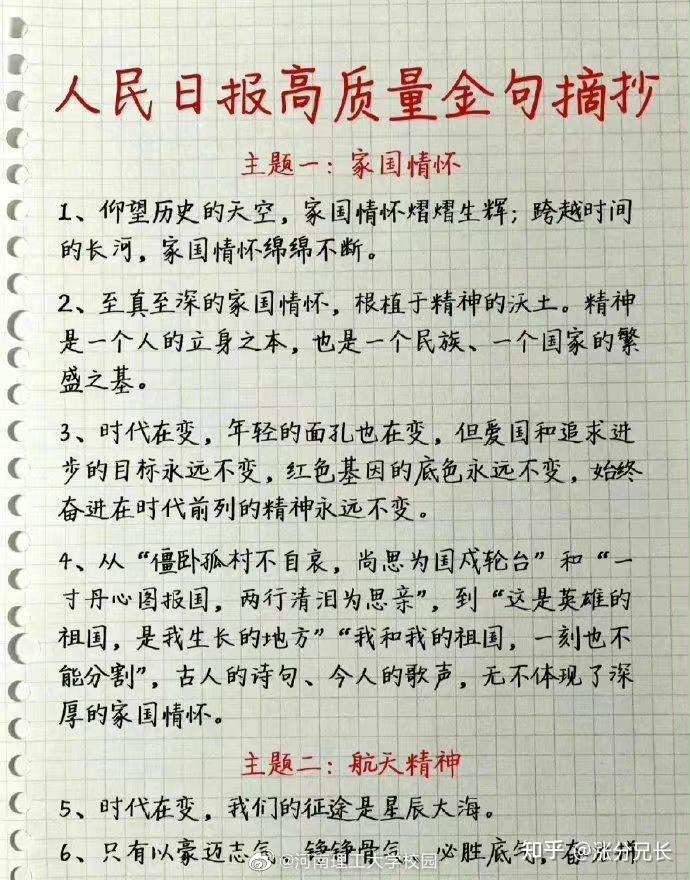 人民日报高质量金句摘抄
主题一：家国情怀
1、仰望历史的天空，家国情怀熠熠生辉；跨越时间
的长河，家国情怀绵绵不断。
2、至真至深的家国情怀，根植于精神的沃土。精神
是一个人的立身之本，也是一个民族、一个国家的繁
盛之基。
3、时代在变，年轻的面孔也在变，但爱国和追求进
步的目标永远不变，红色基因的底色永远不变，始终
奋进在时代前列的精神永远不变。
4、从“僵卧孤村不自哀，尚思为国戍轮台”和“一
寸丹心图报国，两行清泪为思亲”，到“这是英雄的
祖国，是我生长的地方”“我和我的祖国，一刻也不
能分割”，古人的诗句、今人的歌声，无不体现了深
厚的家国情怀。
主题二：航天精神
5、时代在变，我们的征途是星辰大海。
6、只有以豪迈志气、铮铮骨气、必胜底气，奋
@河南理工大学校园
知乎 @涨分兄长